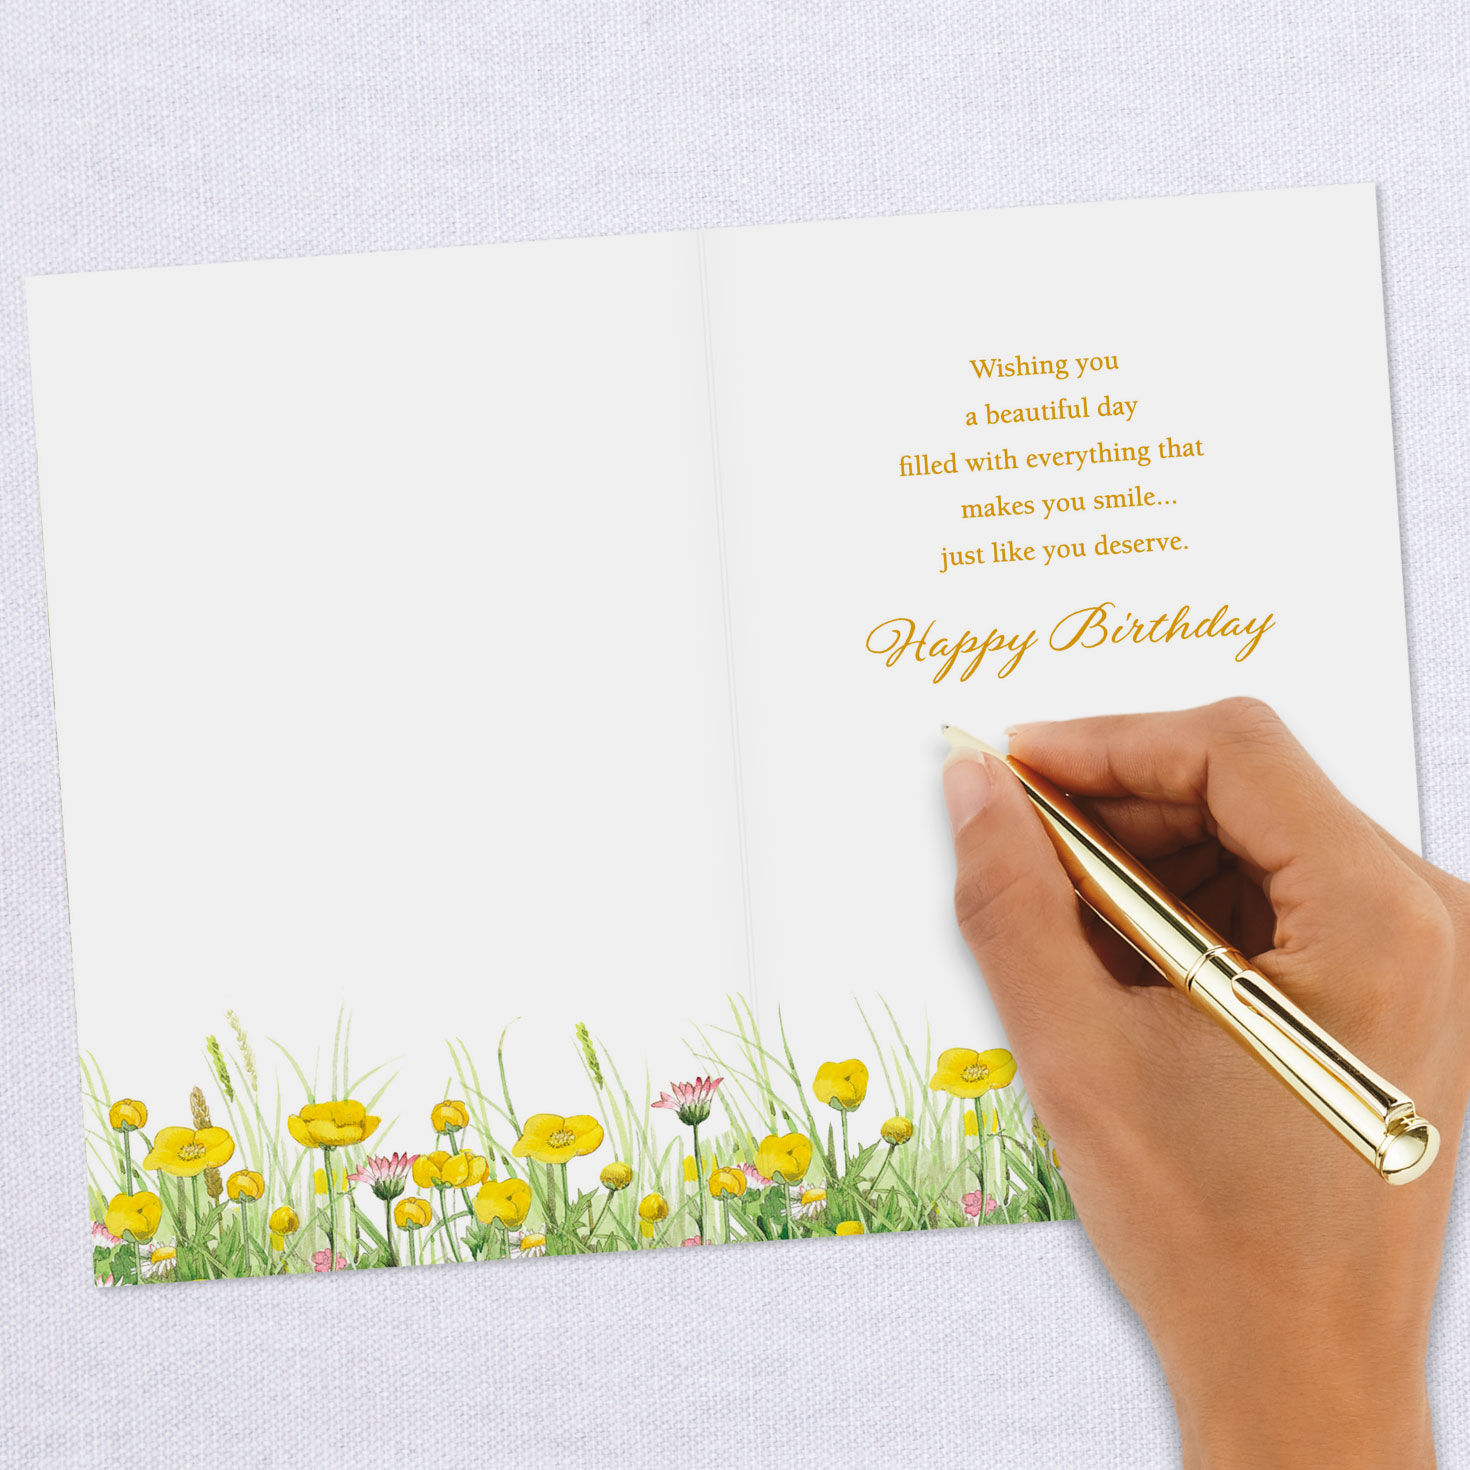 Wishing you
a beautiful day
filled with everything that
makes you smile...
just like you deserve.
Happy Birthday